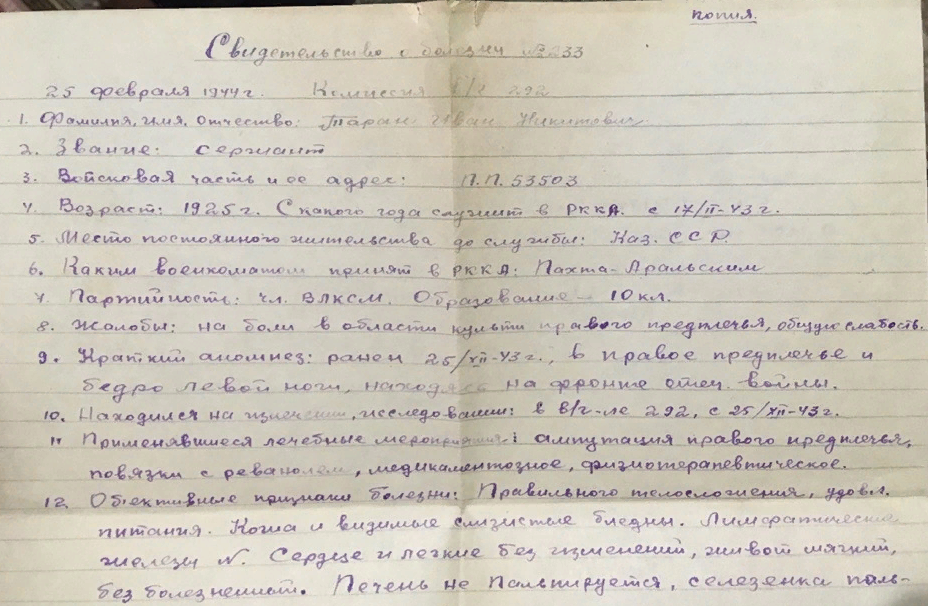 копия.
Свидетельство о болезни №233
25 февраля 1944 г. Комиссия в/г 292
1. Фамилия, имя, отчество: Таран Иван Никитович.
2. Звание: сержант
3. Войсковая часть и ее адрес: П.П. 53503
4. Возраст: 1925 г. С какого года служит в РККА. с 17/II-43 г.
5. Место постоянного жительства до службы: Каз. ССР.
6. Каким военкоматом принят в РККА: Пахта-Аральским
7. Партийность: чл. ВЛКСМ. Образование – 10 кл.
8. Жалобы: на боли в области культи правого предплечья, общую слабость.
9. Краткий аномнез: ранен 25/XII-43 г., в правое предплечье и
бедро левой ноги, находясь на фронте отеч. войны.
10. Находился на излечении, исследовании: в в/г-ле 292, с 25/XII-43 г.
11 Применявшиеся лечебные мероприятия: ампутация правого предплечья,
повязки с реванолем, медикаментозное, физиотерапевтическое.
12. Объективные признаки болезни: Правильного телосложения, удовл.
питания. Кожа и видимые слизистые бледны. Лимфатические
железы N. Сердце и легкие без изменений, живот мягкий,
без болезненност. Печень не пальпируется, селезенка паль-